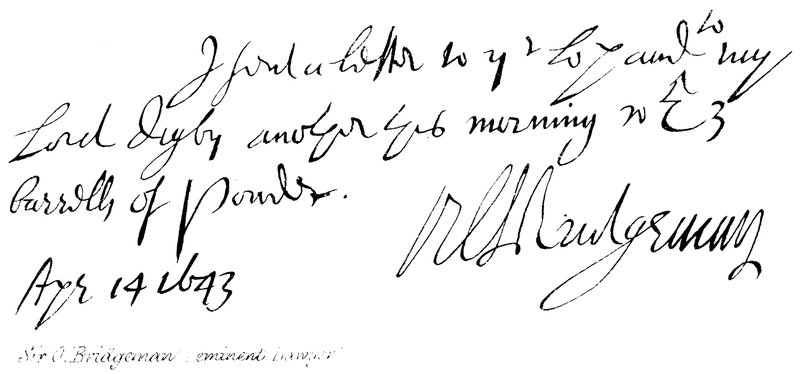 I sent a letter to yr Lop and to my
Lord Digby another this morning wth 3
barrells of Powder.
Orl: Bridgeman
Apr 14 1643
Sir O. Bridgeman eminent Lawyer